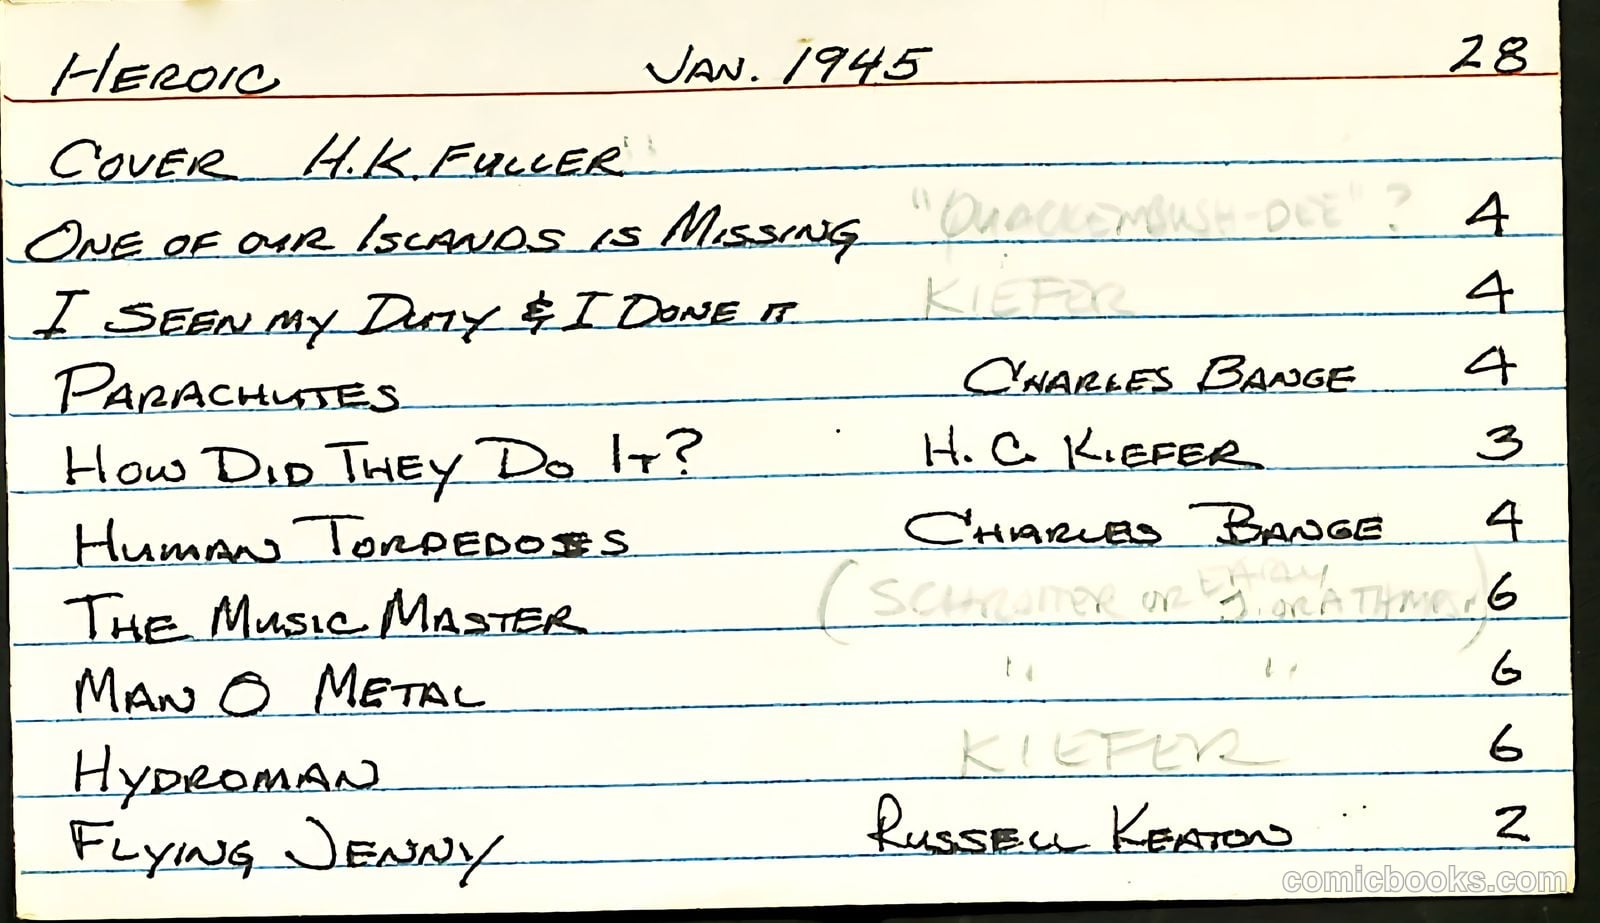 HEROIC JAN. 1945 28
COVER H.K. FULLER
ONE OF OUR ISLANDS IS MISSING "QUACKENBUSH-DEE"? 4
I SEEN MY DUTY & I DONE IT KIEFER 4
PARACHUTES CHARLES BANGE 4
HOW DID THEY DO IT? H. C. KIEFER 3
HUMAN TORPEDOES CHARLES BANGE 4
THE MUSIC MASTER (SCHROTTER OR EARLY J. ORATHMAR) 6
MAN O METAL " " 6
HYDROMAN KIEFER 6
FLYING JENNY RUSSELL KEATON 2
comicbooks.com